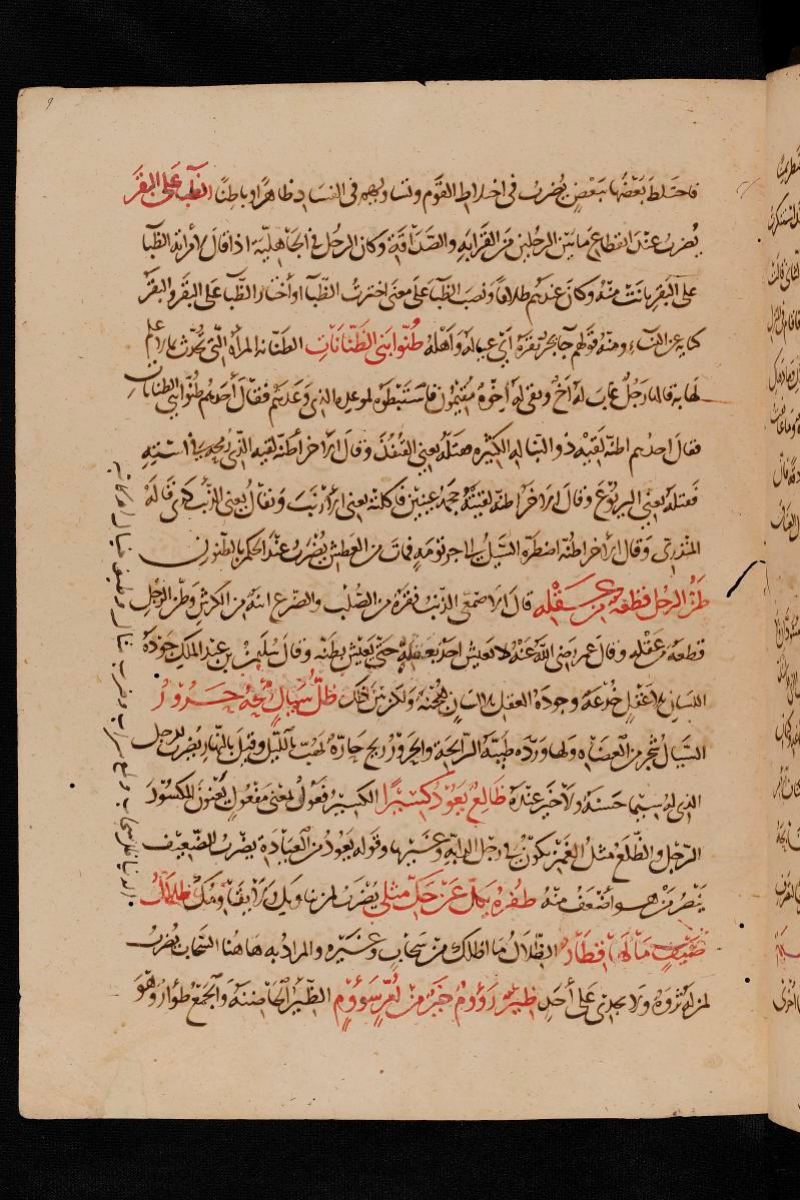 فاختلط بعضها ببعض يضرب فى اختلاط القوم وتساويهم فى الفساد ظاهرا وباطنا الظباء على البقر
يضرب عند انقطاع ما بين الرجلين من القرابة والصداقة وكان الرجل فى الجاهلية اذا قال لامرأته الظبا
على البقر بانت منه وكان عندهم طلاقا ونصب الظبا على معنى اخترت الظبا او أختار الظبا على البقر والبقر
كناية عن النساء ومنه قولهم جا يجر بقره اى عياله وأهله ظنوا بنى الظنانات الظنانة المرأة التى تحدث بما لا علم
لها به قالها رجل غاب له أخ وبقى له إخوة مقيمون فاستبطوه لموعده الذى وعدهم فقال أحدهم ظنوا بنى الظنانات
فقال احدهم اظنه لقيه ذو النباله الكثيره فقتله يعنى القنفذ وقال الآخر أظنه لقيه الذى رمحه فى استه
فقتله يعنى اليربوع وقال الآخر اظنه لقيته حجمه عينين فاكلته يعنى الأرنب ويقال يعنى الذئب كذى قاله
المنذرى وقال الآخر اظنه اضطره السيل الى جرثومة فمات من العطش يضرب عند الحكم بالظنون
ظن الرجل قطعة من عقله قال الاصمعى الذئب فقرة من الصلب والضرع انه من الكرش وظن الرجل
قطعة من عقله وقال عمر رضى الله عنه لا يعيش احد بعقله حتى يعيش بظنه وقال سليمن بن عبد الملك جودة
اللسان بلا عقل خدعة وجودة العقل بلا لسان هجنة ولكن بين ذلك ظل سيال ريحه حرور
السيال شجر من العضاه ولها وردة طيبة الرايحة والحرور ريح حارة تهب بالليل وقيل بالنهار يضرب للرجل
الذى له سيما حسنة ولا خير عنده ظالع يعود كسيرا الكسير فعول بمعنى مفعول يعنون المكسور
الرجل والظلع مثل الغمز يكون فى رجل الدابه وغيرها وقوله يعود من العيادة يضرب للضعيف
ينصر من هو أضعف منه ظفره يكل عن حك مثلى يضرب لمن يناويك ولا يقاومك ظلال
صيف مالها قطار الظلال ما اظلك من سحاب وغيره والمراد به هاهنا السحاب يضرب
لمن له ثروة ولا يجدى على أحد ظئر رؤوم خير من أم سؤوم الظئر الحاضنة والجمع ظؤار وهو